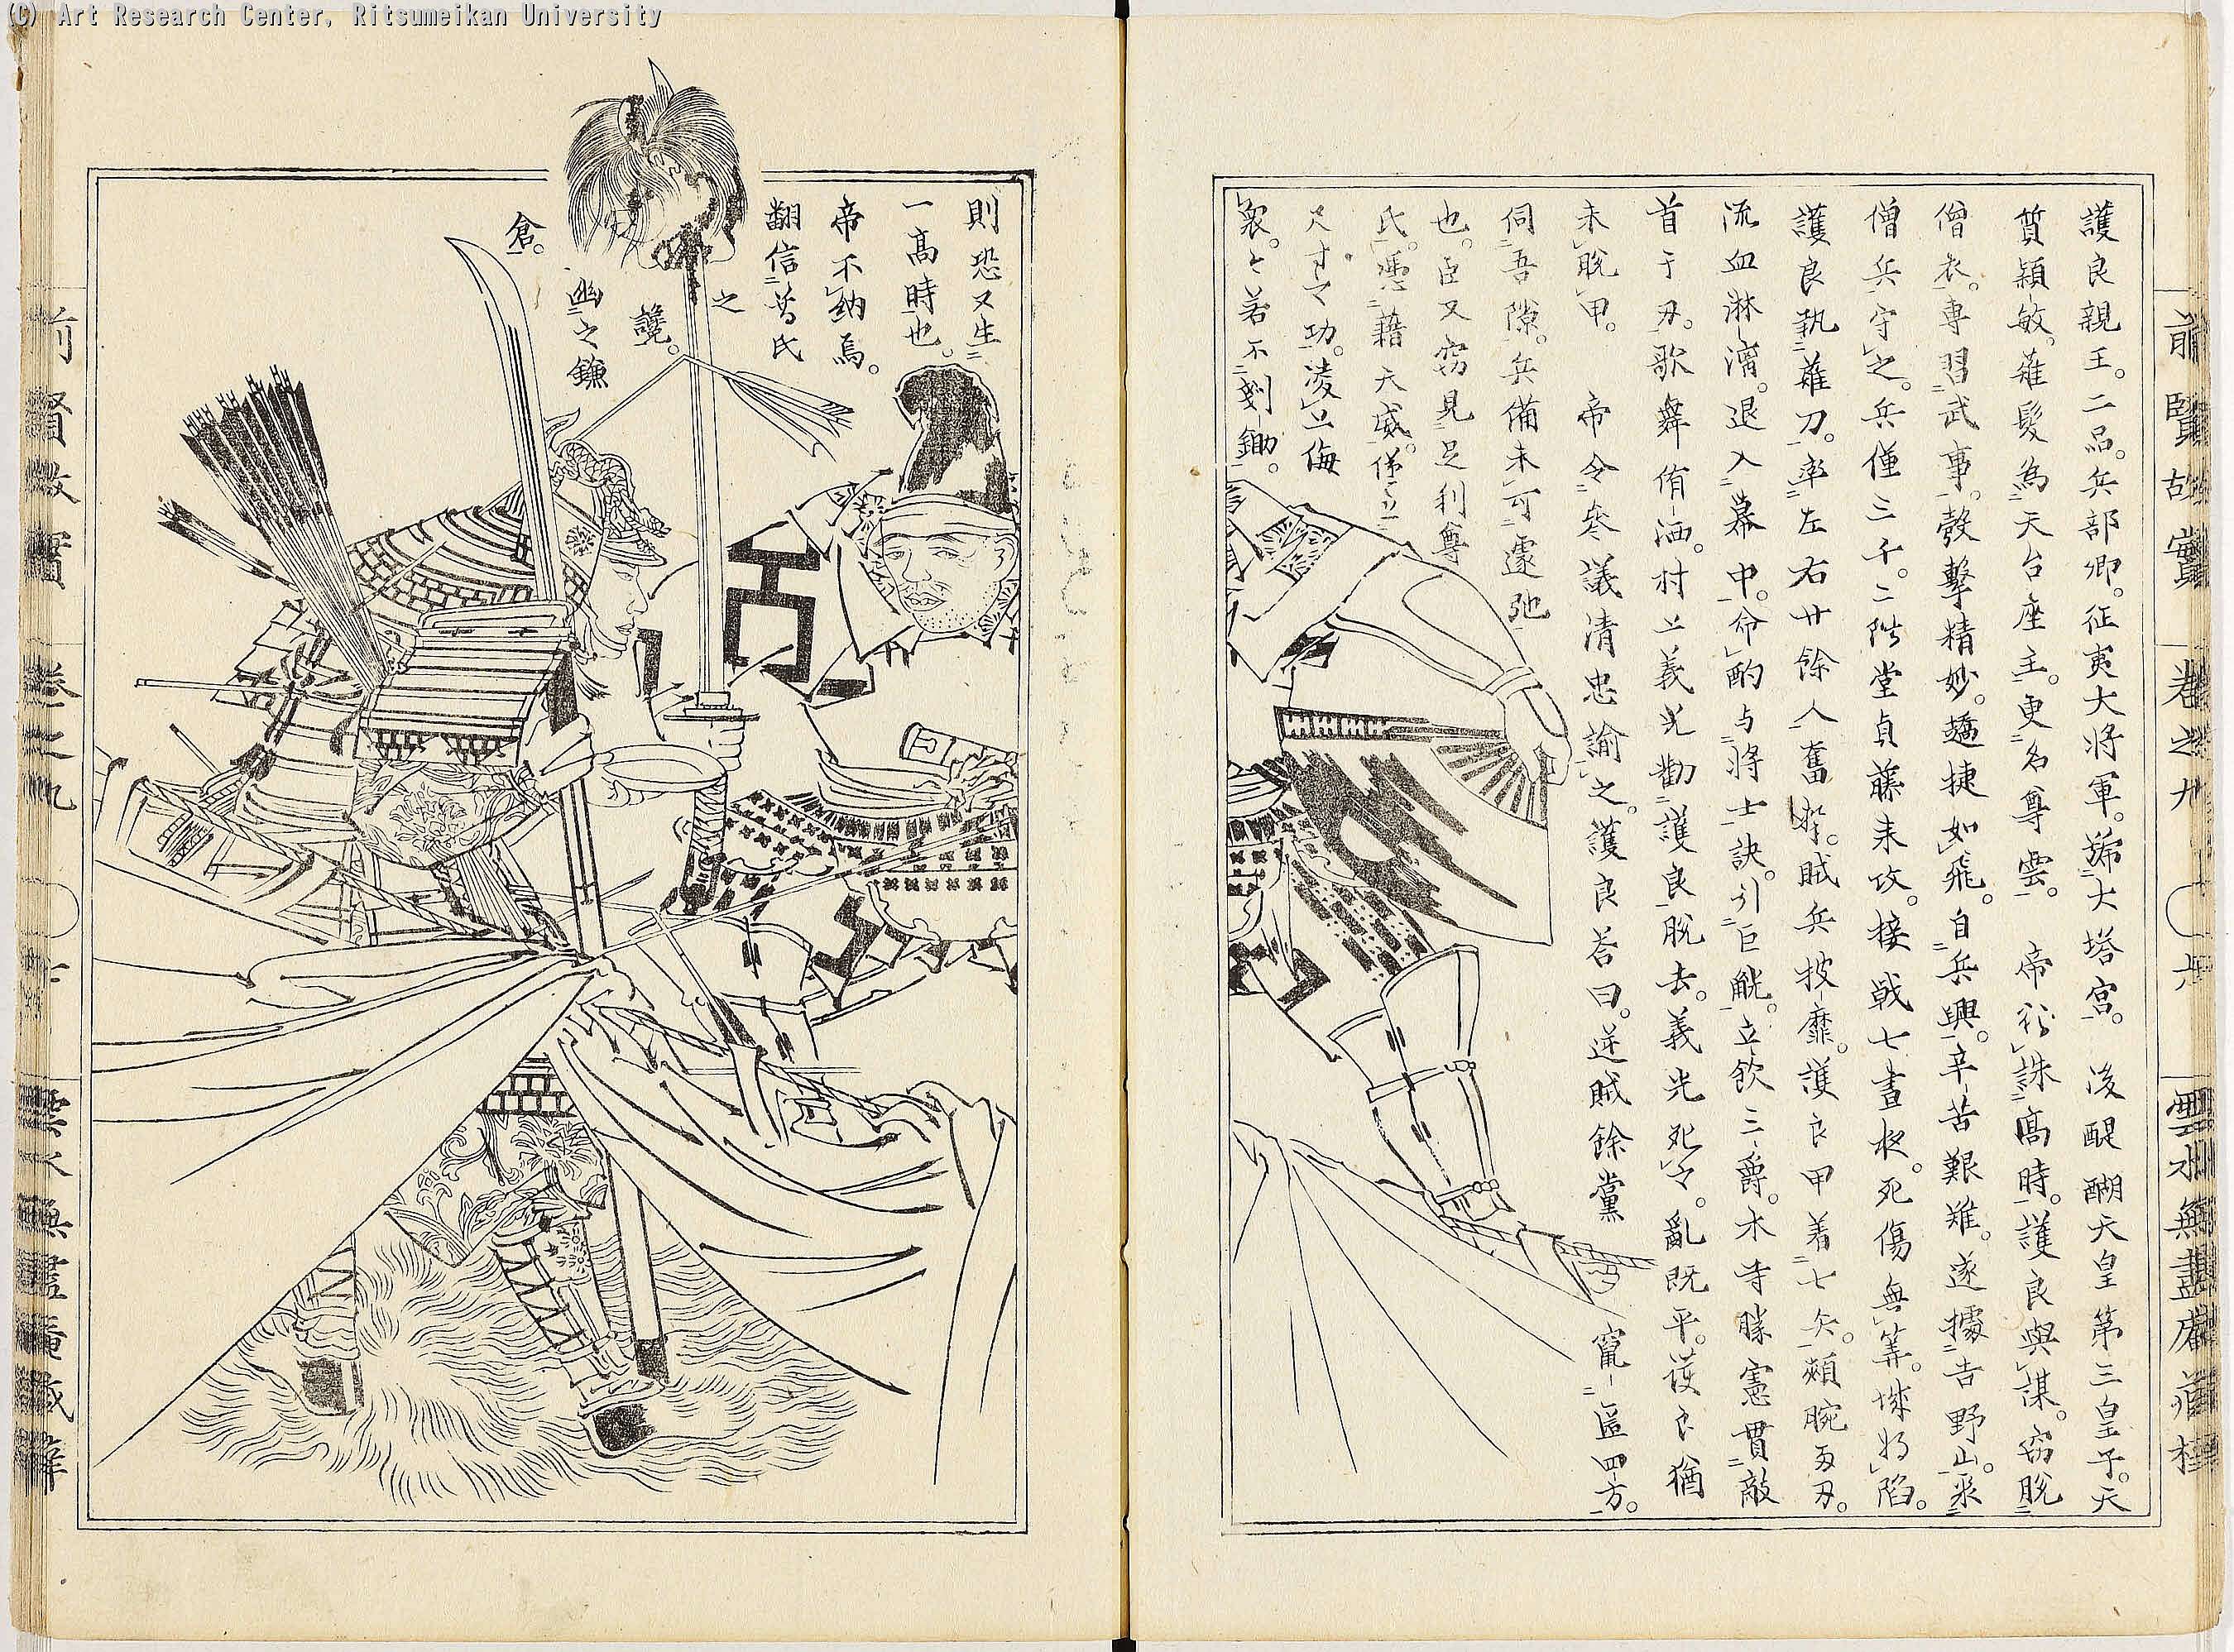 (C) Art Research Center, Ritsumeikan University
前賢故實 卷之九 ○六 雲水無盡庵藏梓
護良親王。二品。兵部卿。征夷大将軍。號大塔宮。 後醍醐天皇第三皇子。天
質穎敏。薙髮為天台座主。更名尊雲。 帝謀誅高時。護良與謀。窃脱
僧衣。專習武事。𣪠擊精妙。趫捷如飛。自兵興。辛苦艱難。遂據吉野山。釆
僧兵守之。兵僅三千。二階堂貞藤来攻。接戦七晝夜。死傷無筭。城将陷。
護良執薙刀。率左右廿餘人奮擊。賊兵披靡。護良甲着七矢。頰腕両刃。
流血淋漓。退入幕中。命酌与將士訣。引巨觥。立飲三爵。木寺勝憲貫敵
首于刃。歌舞侑酒。村上義光勸護良脱去。義光死之。亂既平。護良猶
未脱甲。 帝令参議清忠諭之。護良荅曰。逆賊餘黨 竄匿四方。
伺吾隙。兵備未可遽弛
也。臣又窃見足利尊
氏。憑藉天威。僅立
尺寸之功。凌上侮
衆。々若不剗鋤。
則恐又生
一高時也。
帝不納焉。
翻信尊氏
之
讒。
幽之鎌
倉。
前賢故實 卷之九 ○ 雲水無盡庵藏梓